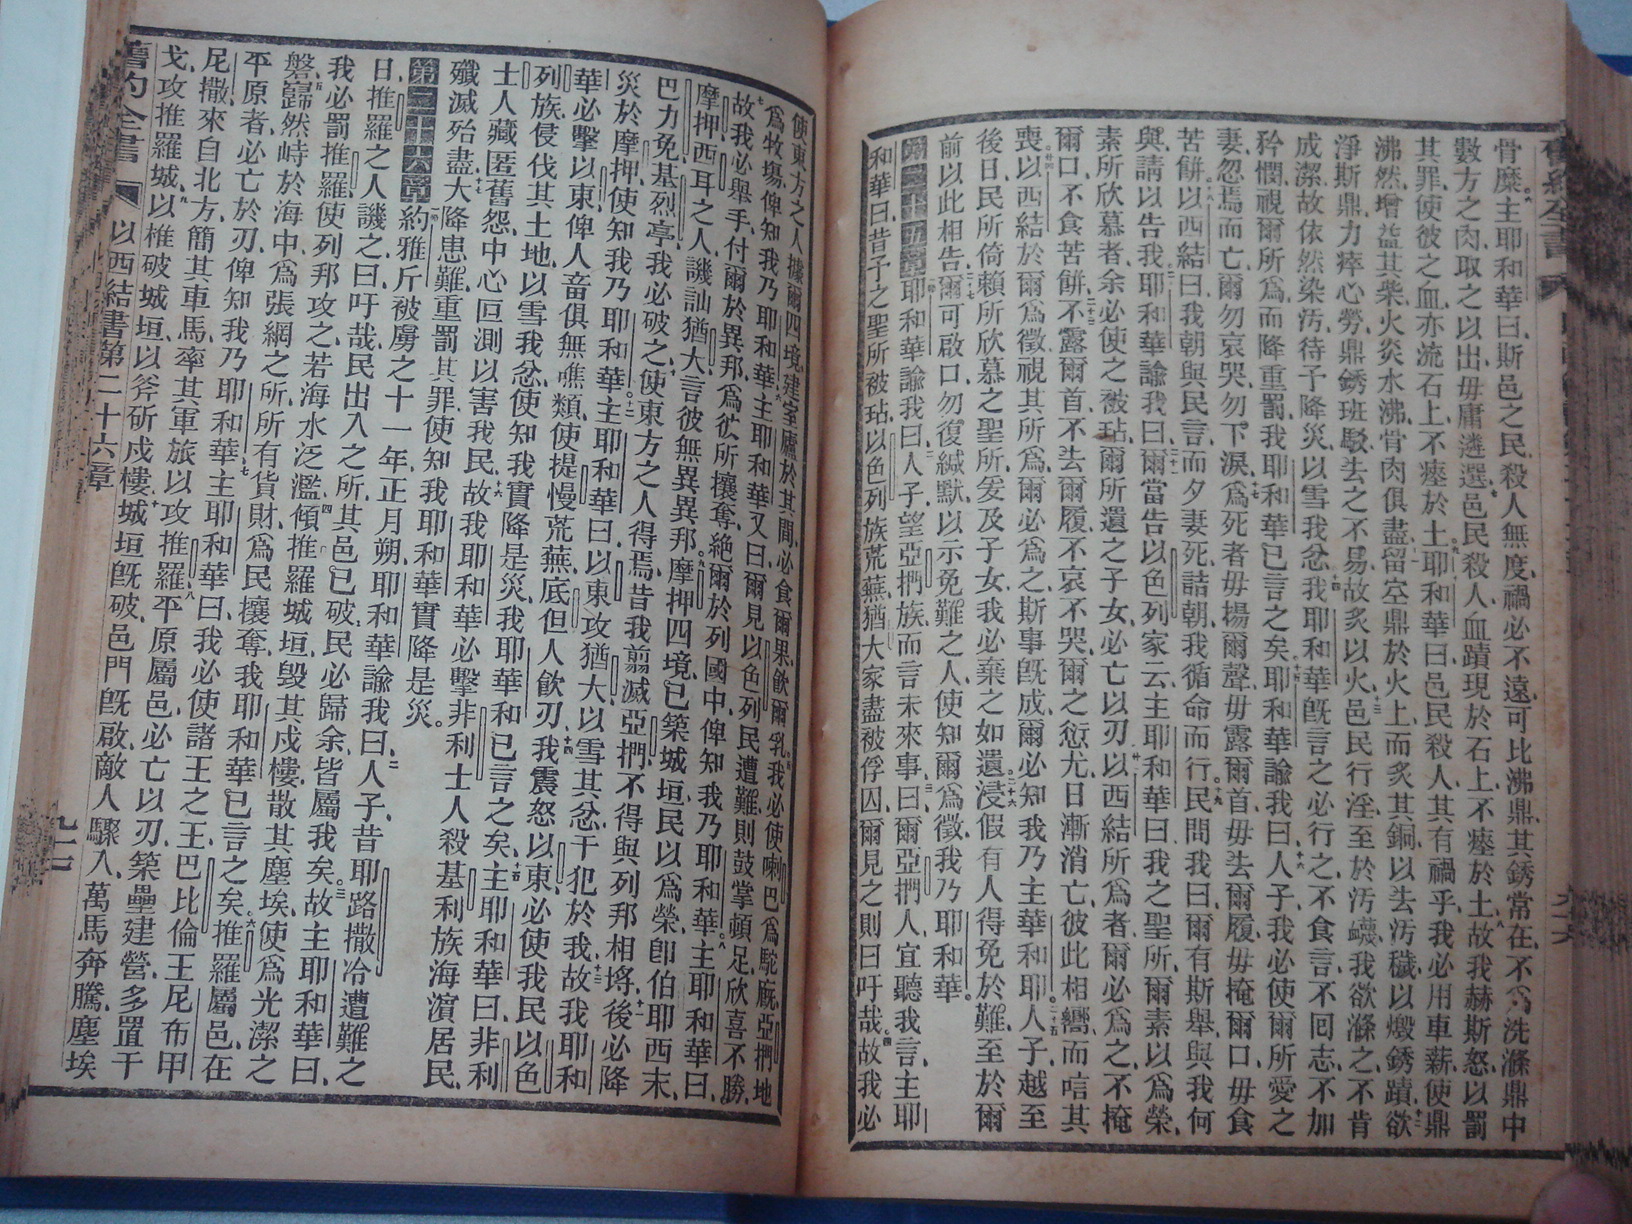 骨糜主耶和華曰斯邑之民殺人無度禍必不遠可比沸鼎其銹常在不為洗滌鼎中
數方之肉取之以出毋庸遴選邑民殺人血蹟現於石上不瘞於土故我赫斯怒以罰
其罪使彼之血亦流石上不瘞於土耶和華曰邑民殺人其有禍乎我必用車薪使鼎
沸然增益其柴火炎水沸骨肉俱盡留空鼎於火上而炙其銅以去汚穢以燬銹蹟欲
淨斯鼎力瘁心勞鼎銹班駁去之不易故炙以火邑民行淫至於汚衊我欲滌之不肯
成潔故依然染汚待予降災以雪我忿我耶和華旣言之必行之不食言不囘志不加
矜憫視爾所爲而降重罰我耶和華已言之矣耶和華諭我曰人子我必使爾所愛之
妻忽焉而亡爾勿哀哭勿下淚爲死者毋揚爾聲毋露爾首毋去爾履毋掩爾口毋食
苦餅以西結曰我朝與民言而夕妻死詰朝我循命而行民問我曰爾有斯舉與我何
與請以告我耶和華諭我曰爾當告以色列家云主耶和華曰我之聖所爾素以爲榮
素所欣慕者余必使之被玷爾所遺之子女必亡以刃以西結所爲者爾必爲之不掩
爾口不食苦餅不露爾首不去爾履不哀不哭爾之愆尤日漸消亡彼此相嚮而唁其
喪以西結於爾爲徵視其所爲爾必爲之斯事旣成爾必知我乃主耶和華人子越至
後日民所倚賴所欣慕之聖所爰及子女我必棄之如遺浸假有人得免於難至於爾
前以此相告爾可啟口勿復緘默以示免難之人使知爾爲徵我乃耶和華
第二十五章耶和華諭我曰人子望亞捫族而言未來事曰爾亞捫人宜聽我言主耶
和華曰昔予之聖所被玷以色列族荒蕪猶大家盡被俘囚爾見之則曰吁哉故我必
使東方之人據爾四境建室廬於其間必食爾果飲爾乳我必使喇巴爲駝廐亞捫地
爲牧塲俾知我乃耶和華主耶和華又曰爾見以色列民遭難則鼓掌頓足欣喜不勝
故我必舉手付爾於異邦爲彼所攘奪絕爾於列國中俾知我乃耶和華主耶和華曰
摩押西耳之人譏訕猶大言彼無異異邦摩押四境已築城垣民以爲榮卽伯耶西末
巴力免基烈亭我必破之使東方之人得焉昔我翦滅亞捫不得與列邦相埒後必降
災於摩押使知我乃耶和華主耶和華曰以東攻猶大以雪其忿干犯於我故我耶和
華必擊以東俾人畜俱無噍類使提慢荒蕪底但人飲刃我震怒以東必使我民以色
列族侵伐其土地以雪我忿使知我實降是災我耶和華已言之矣主耶和華曰非利
士人藏匿舊怨中心叵測以害我民故我耶和華必擊非利士人殺基利族海濱居民
殲滅殆盡大降患難重罰其罪使知我耶和華實降是災
第二十六章約雅斤被虜之十一年正月朔耶和華諭我曰人子昔耶路撒冷遭難之
日推羅之人譏之曰吁哉民出入之所其邑已破民必歸余皆屬我矣故主耶和華曰
我必罰推羅使列邦攻之若海水泛濫傾推羅城垣毀其戍樓散其塵埃使爲光潔之
磐巋然峙於海中爲張網之所所有貨財爲民攘奪我耶和華已言之矣推羅屬邑在
平原者必亡於刃俾知我乃耶和華主耶和華曰我必使諸王之王巴比倫王尼布甲
尼撒來自北方簡其車馬率其軍旅以攻推羅平原屬邑必亡以刃築壘建營多置干
戈攻推羅城以椎破城垣以斧斫戍樓城垣旣破邑門旣啟敵人驟入萬馬奔騰塵埃
舊約全書 以西結書第二十六章